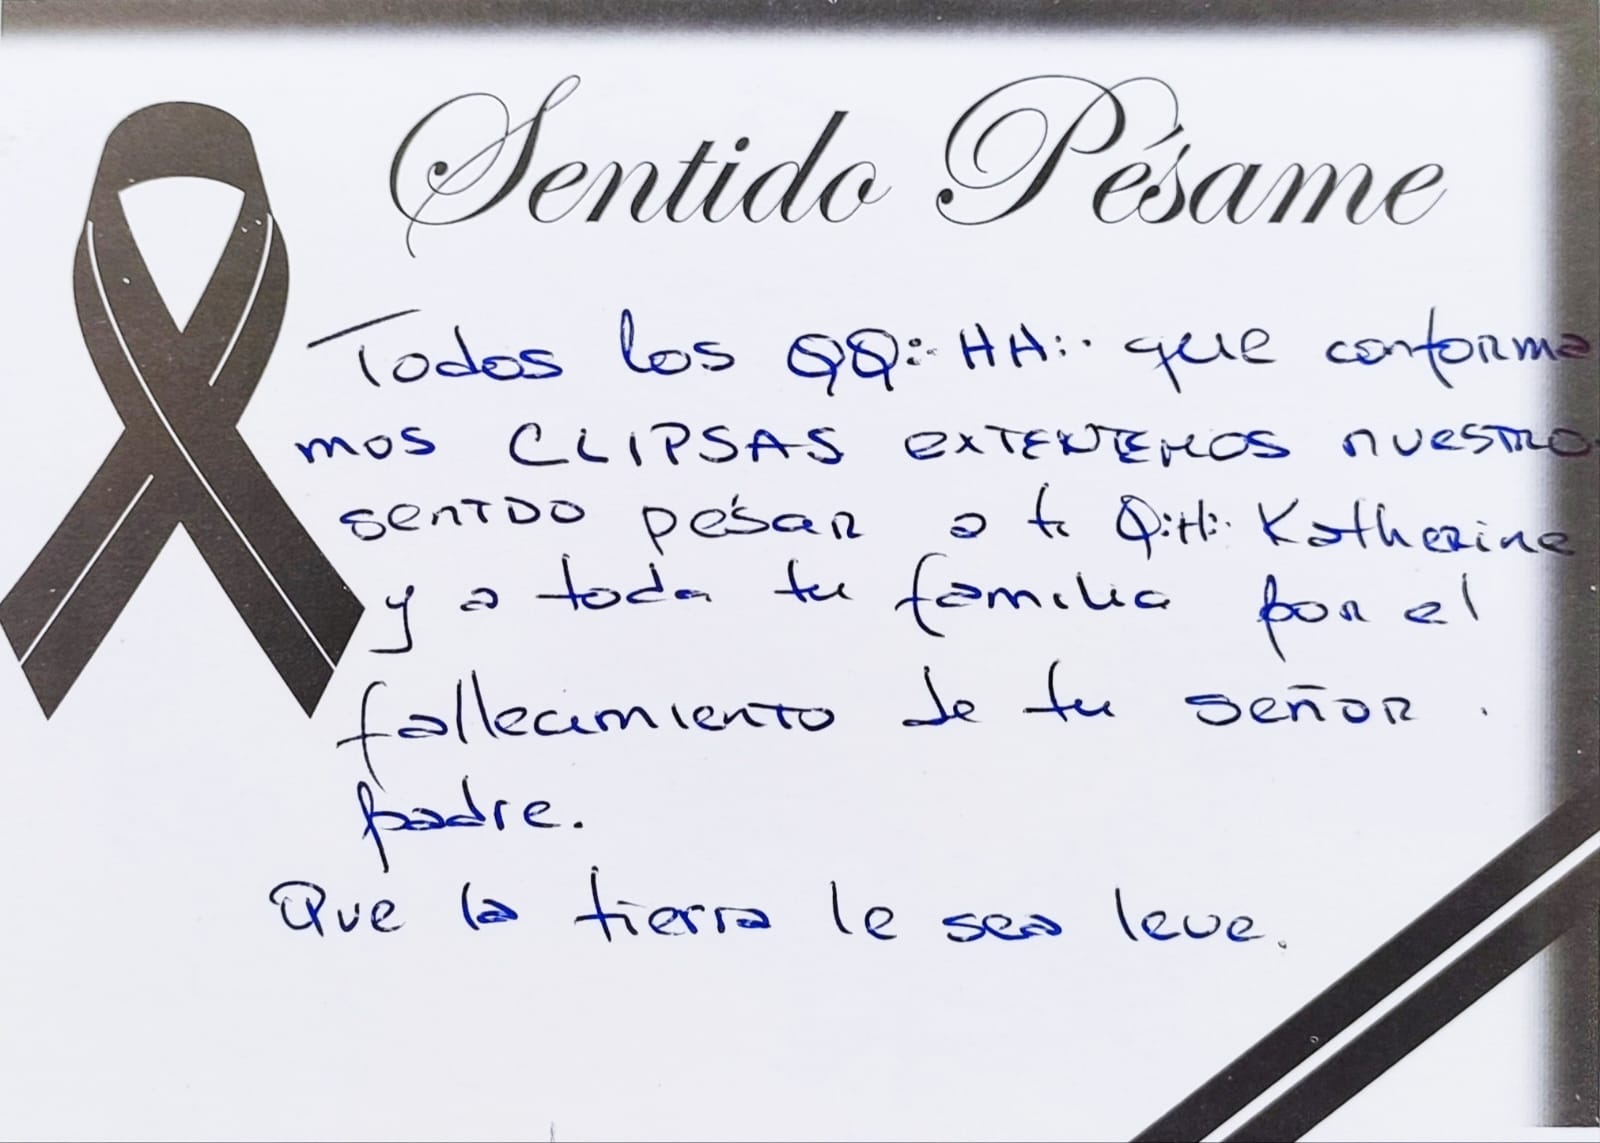 Sentido Pésame
Todos los QQ∴ HH∴ que conforma
mos CLIPSAS extendemos nuestro
sentido pésar a ti Q∴H∴ Katherine
y a toda tu familia por el
fallecimiento de tu señor
padre.
Que la tierra le sea leve.